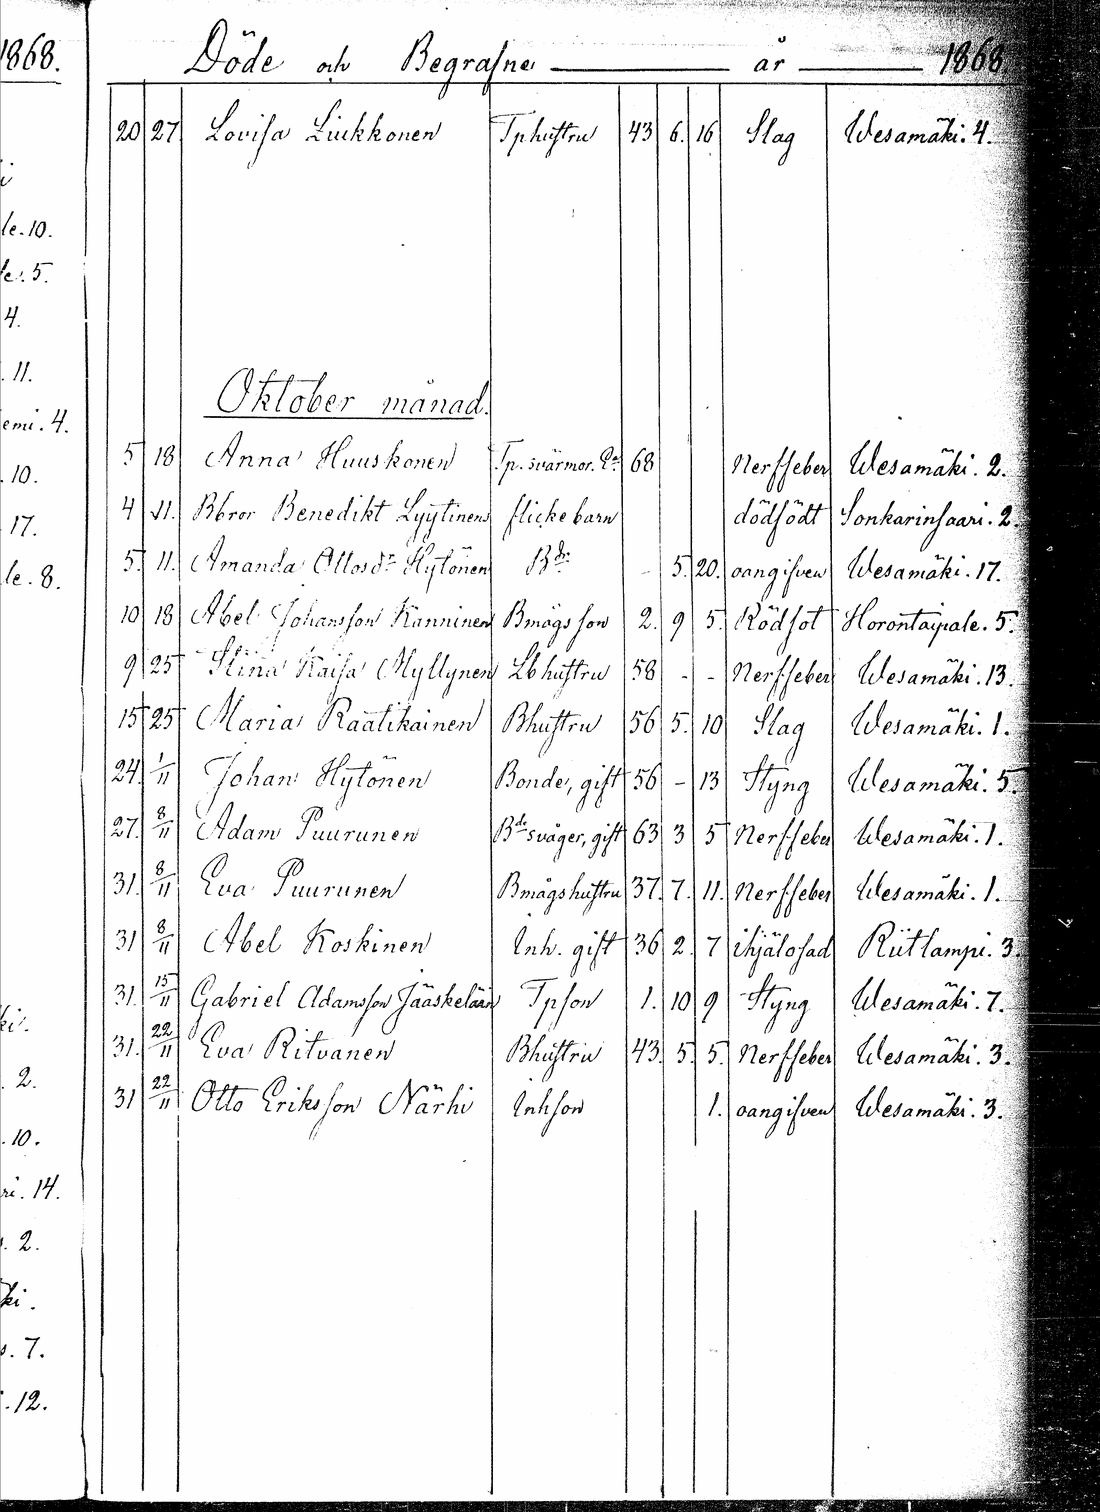 1868.
Döde och Begrafne år 1868
20 27 Lovisa Liukkonen Tphustru 43 6. 16 Slag Wesamäki. 4.
le. 10.
le. 5.
4.
. 11.
Oktober månad.
emi. 4.
5 18 Anna Huuskonen Tp. svärmor. 68 Nerffeber Wesamäki. 2.
. 10.
4 11. Bbror Benedikt Lyytinens flickebarn dödfödt Sonkarinsaari. 2.
. 17.
5. 11. Amanda Ottosdr Hytönen Bdr 5. 20. oangifven Wesamäki. 17.
le. 8.
10 18 Abel Johansson Kanninen Bmågs son 2. 9 5. Rödsot Horontaipale. 5.
9 25 Stina Kaisa Myllynen Lbhustru 58 - - Nerffeber Wesamäki. 13.
15 25 Maria Raatikainen Bhustru 56 5. 10 Slag Wesamäki. 1.
24. 1/11 Johan Hytönen Bonde, gift 56 - 13 Styng Wesamäki. 5.
27. 8/11 Adam Puurunen Bde svåger, gift 63 3 5 Nerffeber Wesamäki. 1.
31. 8/11 Eva Puurunen Bmågshustru 37. 7. 11. Nerffeber Wesamäki. 1.
31 8/11 Abel Koskinen Inh. gift 36 2. 7 ihjälosad Riitlampi. 3.
31. 15/11 Gabriel Adamsson Jääskeläin Tpson 1. 10 9 Styng Wesamäki. 7.
ki.
31. 22/11 Eva Ritvanen Bhustru 43. 5. 5. Nerffeber Wesamäki. 3.
. 2.
31 22/11 Otto Eriksson Närhi Inhson 1. oangifven Wesamäki. 3.
. 10.
ri. 14.
. 2.
ki.
s. 7.
. 12.